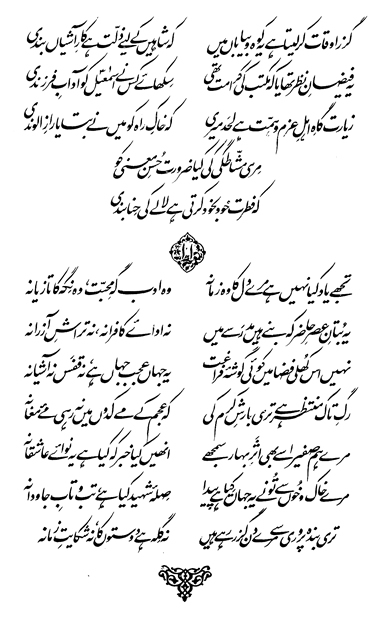 گزر اوقات کر لیتا ہے یہ کوہ و بیاباں میں کہ شاہیں کے لیے ذلّت ہے کارِ آشیاں بندی
یہ فیضانِ نظر تھا یا کہ مکتب کی کرامت تھی سکھائے کس نے اسمٰعیلؑ کو آدابِ فرزندی
زیارت گاہِ اہلِ عزم و ہمّت ہے لحد میری کہ خاکِ راہ کو میں نے بتایا رازِ الوندی
مری مشّاطگی کی کیا ضرورت حُسنِ معنی کو
کہ فطرت خود بخود کرتی ہے لالے کی حنابندی
تجھے یاد کیا نہیں ہے مرے دل کا وہ زمانہ وہ ادب گہِ محبّت، وہ نِگہ کا تازیانہ
یہ بُتانِ عصرِ حاضر کہ بنے ہیں مدرسے میں نہ ادائے کافرانہ، نہ تراشِ آزرانہ
نہیں اس کھُلی فضا میں کوئی گوشۂ فراغت یہ جہاں عجب جہاں ہے، نہ قفس نہ آشیانہ
رگِ تاک منتظر ہے تری بارشِ کرم کی کہ عجم کے مے کدوں میں نہ رہی مئے مغانہ
مرے ہم صفیر اسے بھی اثرِ بہار سمجھے انھیں کیا خبر کہ کیا ہے یہ نوائے عاشقانہ
مرے خاک و خوں سے تُونے یہ جہاں کِیا ہے پیدا صلۂ شہید کیا ہے، تب و تابِ جاودانہ
تری بندہ پروری سے مرے دن گزر رہے ہیں نہ گلہ ہے دوستوں کا، نہ شکایتِ زمانہ